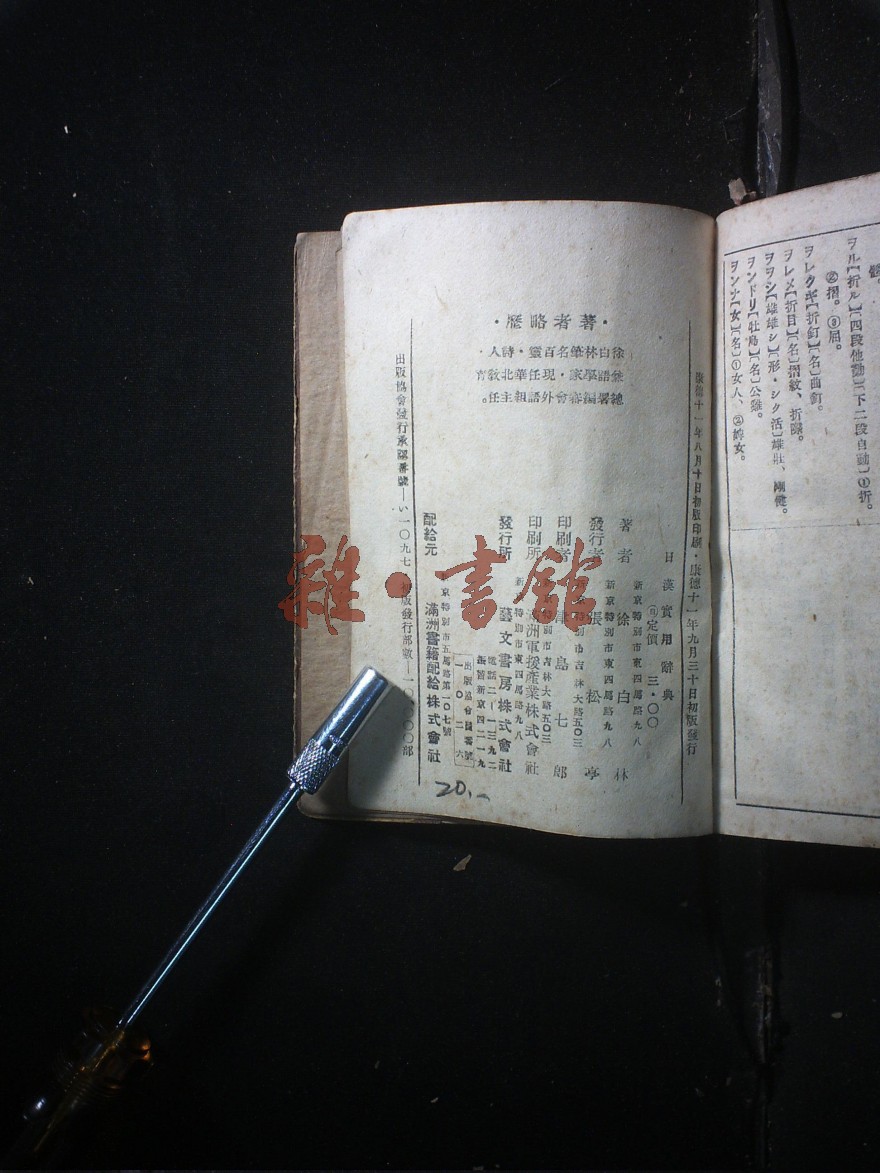 ヲル【折ル】〔四段他動〕〔下二段自動〕①折。
②摺。③屈。
ヲレクギ【折釘】〔名〕曲釘。
ヲレメ【折目】〔名〕摺紋、折疊。
ヲヲシ【雄雄シ】〔形・シク活〕雄壯、剛健。
ヲンドリ【牡鳥】〔名〕公雞。
ヲンナ【女】〔名〕①女人、②婢女。
康德十一年八月十日初版印刷・康德十一年九月三十日初版發行
・著者略歷・
徐白林筆名百靈・詩人・
兼語學家・現任華北敎育
總署編審會外語組主任。
日漢實用辭典
定價 三・〇〇
新京特別市東四馬路九八
著者 徐白林
新京特別市東四馬路九八
發行者 張松亭
特別市吉林大路五〇三
印刷者 津島七郎
特別市吉林大路五〇三
印刷所 滿洲軍援產業株式會社
新 特別市東四馬路九八
發行所 藝文書房株式會社
電話二—一三九二
振替新京四二一九
出版協會員番號
一〇二六
京特別市五馬路第一〇七號
配給元 滿洲書籍配給株式會社
出版協會發行承認番號—い一〇九七 版發行部數—一〇〇〇〇部
20.-
雜・書館